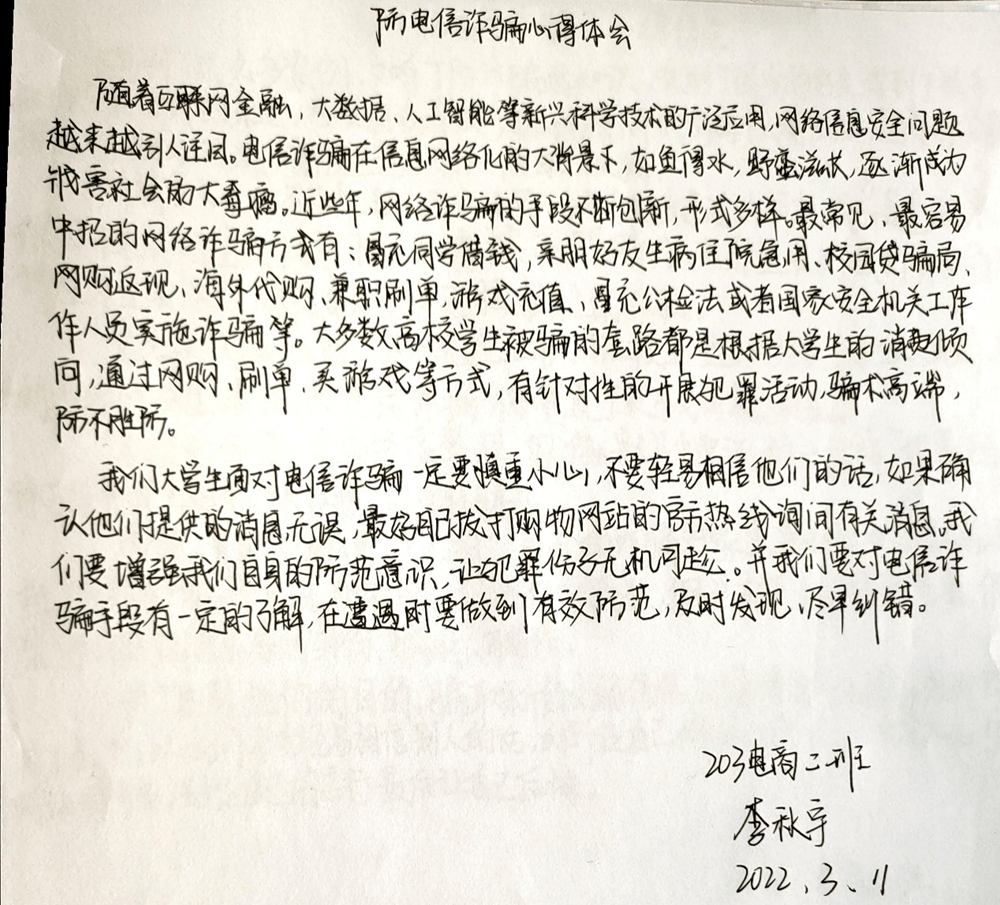 防电信诈骗心得体会
随着互联网金融、大数据、人工智能等新兴科学技术的广泛应用,网络信息安全问题
越来越引人注目。电信诈骗在信息网络化的大背景下,如鱼得水,野蛮滋长,逐渐成为
残害社会的大毒瘤。近些年,网络诈骗的手段不断创新,形式多样。最常见、最容易
中招的网络诈骗方式有:冒充同学借钱,亲朋好友生病住院急用、校园贷骗局、
网购返现、海外代购、兼职刷单、游戏充值、冒充公检法或者国家安全机关工作
作人员实施诈骗等。大多数高校学生被骗的套路都是根据大学生的消费倾
向,通过网购、刷单、买游戏等方式,有针对性的开展犯罪活动,骗术高端,
防不胜防。
我们大学生面对电信诈骗一定要慎重小心,不要轻易相信他们的话,如果确
认他们提供的消息无误,最好自己拨打购物网站的官方热线询问有关消息。我
们要增强我们自身的防范意识,让犯罪份子无机可趁。并我们要对电信诈
骗手段有一定的了解,在遭遇时要做到有效防范,及时发现,尽早纠错。
203电商二班
李秋宇
2022、3、11